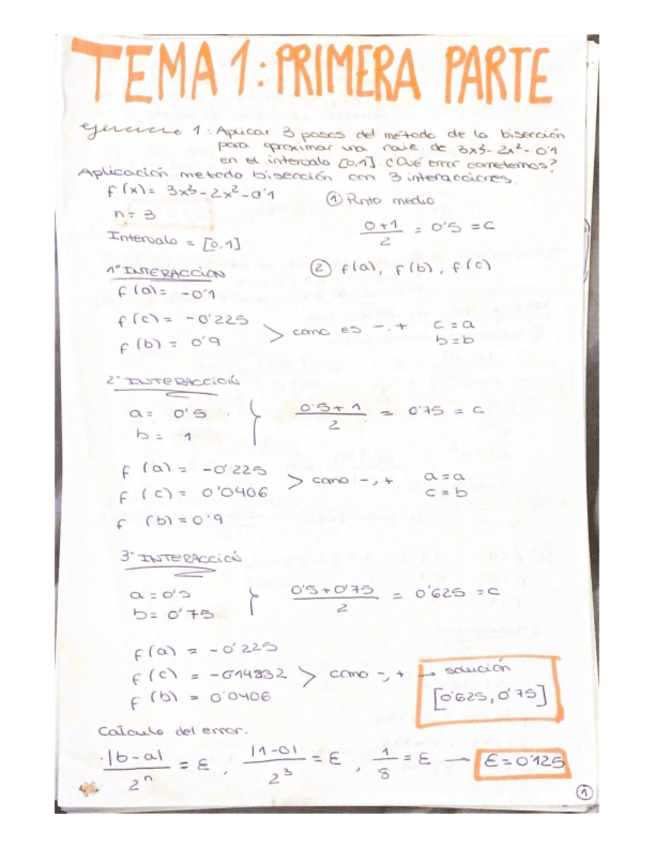 TEMA 1: PRIMERA PARTE
Ejercicio 1: Aplicar 3 pasos del método de la bisección
para aproximar una raíz de 3x³-2x²-0'1
en el intervalo [0,1]. ¿Qué error cometemos?
Aplicación metodo bisección con 3 interacciones.
f(x)= 3x³-2x²-0'1 ① Punto medio
n= 3
0+1/2 = 0'5 = c
Intervalo = [0,1]
1ª INTERACCIÓN ② f(a), f(b), f(c)
f(a)= -0'1
f(c)= -0'225
f(b)= 0'9 > como es -,+ c=a b=b
2ª INTERACCIÓN
a= 0'5
b= 1 } 0'5+1/2 = 0'75 = c
f(a)= -0'225
f(c)= 0'0406 > como -,+ a=a c=b
f(b)=0'9
3ª INTERACCIÓN
a=0'5
b= 0'75 } 0'5+0'75/2 = 0'625 =c
f(a) = -0'225
f(c) = -0'14882 > como -,+ → solución
f(b) = 0'0406 [0'625, 0'75]
Calculo del error.
|b-a|/2ⁿ = ε, |1-0|/2³ = ε, 1/8 = ε → ε=0'125
①